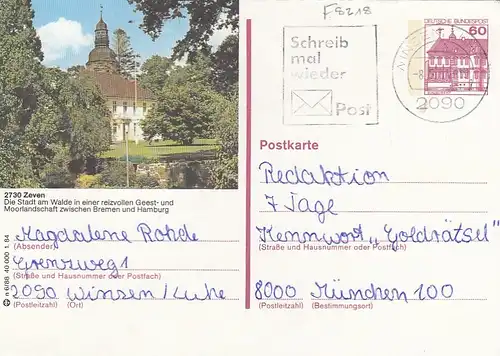 F8218
Schreib
mal
wieder
Post
DEUTSCHE BUNDESPOST
60
2090
2730 Zeven
Die Stadt am Walde in einer reizvollen Geest- und
Moorlandschaft zwischen Bremen und Hamburg
Magdalene Rohde
(Absender)
Grenzweg 1
(Straße und Hausnummer oder Postfach)
2090 Winsen/Luhe
(Postleitzahl) (Ort)
n 6/88 40 000 1. 84
Postkarte
Redaktion
7 Tage
Kennwort „Goldrätsel"
(Straße und Hausnummer oder Postfach)
8000 München 100
(Postleitzahl) (Bestimmungsort)